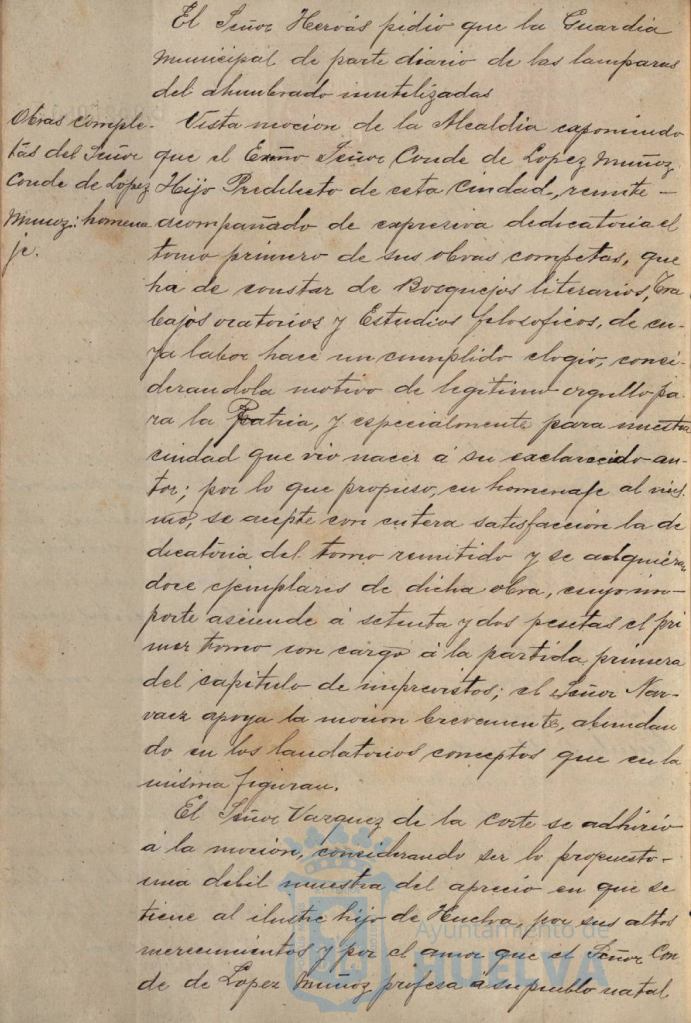 El Señor Hervás pidio que la Guardia
Municipal de parte diario de las lamparas
del alumbrado inutilizadas
Obras comple-
tas del Señor
Conde de López
Muñoz: homena
je.
Vista mocion de la Alcaldia exponiendo
que el Exmo Señor Conde de Lopez Muñoz
Hijo Predilecto de esta Ciudad, remite-
acompañado de expresiva dedicatoria el
tomo primero de sus obras competas, que
ha de constar de Bosquejos literarios, Tra
bajos oratorios y Estudios filosoficos, de cu-
ya labor hace un cumplido elogio, consi-
derandola motivo de legitimo orgullo pa-
ra la Patria, y especialmente para nuestra
ciudad que vio nacer á su esclarecido au-
tor; por lo que propuso, en homenaje al mis-
mo, se acepte con entera satisfacción la de
dicatoria del tomo remitido y se adquieran
doce ejemplares de dicha obra, cuyo im-
porte asciende á setenta y dos pesetas el pri
mer tomo con cargo á la partida primera
del capitulo de imprevistos; el Señor Nar-
vaez apoya la mocion brevemente, abundan
do en los laudatorios conceptos que en la
misma figuran.
El Señor Vazquez de la Corte se adhirio
á la moción, considerando ser lo propuesto-
una debil muestra del aprecio en que se
tiene al ilustre hijo de Huelva, por sus altos
merecimientos y por el amor que el Señor Con
de de Lopez Muñoz profesa á su pueblo natal
Ayuntamiento de
HUELVA